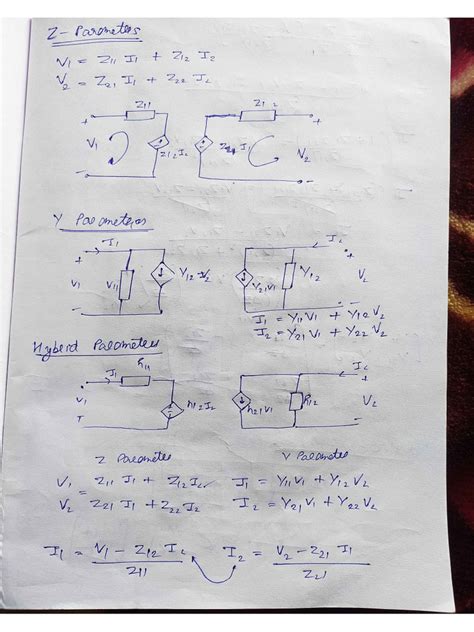 Z - Parameters
V1 = Z11 I1 + Z12 I2
V2 = Z21 I1 + Z22 I2
Z11 Z12
+ + + +
V1 Z12 I2 Z21 I V2
- -
Y Parameters
I1 I2
+ +
V1 Y11 Y12 V2 Y21 V1 Y12 V2
I1 = Y11 V1 + Y12 V2
I2 = Y21 V1 + Y22 V2
Hyberd Parameters
I1 h11 I2
+ +
V1 h12 I2 h21 V1 h12 V2
Z Parameter Y Parameter
V1 = Z11 I1 + Z12 I2 I1 = Y11 V1 + Y12 V2
V2 = Z21 I1 + Z22 I2 I2 = Y21 V1 + Y22 V2
I1 = V1 - Z12 I2 I2 = V2 - Z21 I1
Z11 Z21